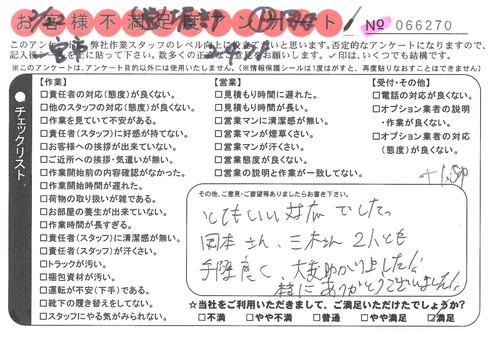 お客様不満足度アンケート
No 066270
このアンケートは、弊社作業スタッフのレベル向上に役立てたいと思います。否定的なアンケートになりますので、
記入後シールを上に貼って下さい。数多くの正直な意見をお願いします。✓印は、いくつでも結構です。
※このアンケートは、アンケート目的以外には使用いたしません。（※情報保護シールは1度はがすと、再度貼りなおすことはできません）
チェックリスト
【作業】
□責任者の対応（態度）が良くない。
□他のスタッフの対応（態度）が良くない。
□作業を見ていて不安がある。
□責任者（スタッフ）に好感が持てない。
□お客様への挨拶が出来ていない。
□ご近所への挨拶・気遣いが無い。
□作業開始前の内容確認がなかった。
□作業開始時間が遅れた。
□荷物の取り扱いが雑である。
□お部屋の養生が出来ていない。
□作業時間が長すぎる。
□責任者（スタッフ）に清潔感が無い。
□責任者（スタッフ）が汗くさい。
□トラックが汚い。
□梱包資材が汚い。
□運転が不安（下手）である。
□靴下の履き替えをしてない。
□スタッフにやる気がみられない。
【営業】
□見積もり時間に遅れた。
□見積もり時間が長い。
□営業マンに清潔感が無い。
□営業マンが煙草くさい。
□営業マンが汗くさい。
□営業態度が良くない。
□営業の説明と作業が一致してない。
【受付・その他】
□電話の対応が良くない。
□オプション業者の説明
・作業が良くない。
□オプション業者の対応
（態度）が良くない。
その他、ご意見・ご要望等ありましたらお書き下さい。
とてもいい対応でした。
岡本さん、三木さん2人とも
手際良く、大変助かりました!!
本当にありがとうございました!!
☆当社をご利用いただきまして、ご満足いただけたでしょうか？
□不満 □やや不満 □普通 □やや満足 ☑満足